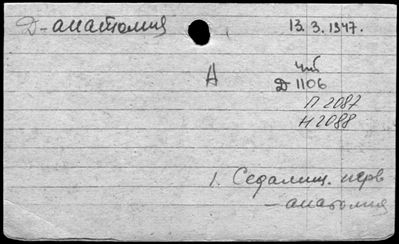 Д-анатомия 13.3.1947.
А чт
Д 1106
П 2087
Н 2088
1. Седалищ. нерв
- анатомия